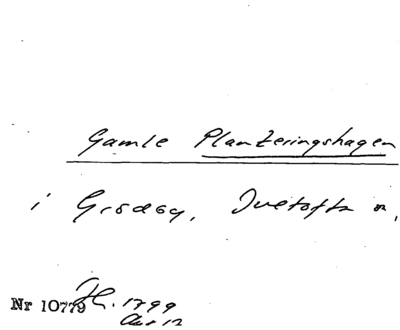 Gamle Planteringshagen
i Grödby, Ivetofta sn,
Nr 10779 H. 1799
Akt 12